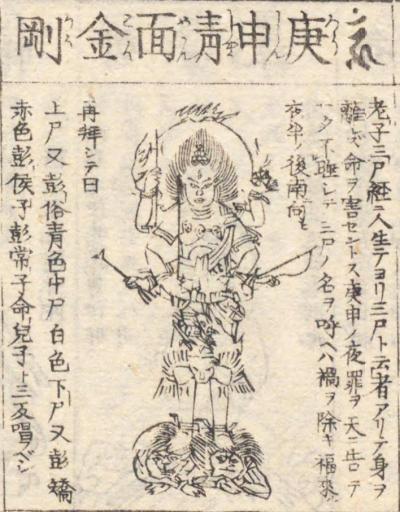 庚申青面金剛
老子三尸経ニ人生テヨリ三尸ト云者アリテ身ヲ
離レズ命ヲ害セントス庚申ノ夜罪ヲ天ニ告
ク不睡シテ三尸ノ名ヲ呼ヘハ禍ヲ除キ福来
夜半ノ後南向
再拜シテ曰
上尸又彭俗青色中尸白色下尸又彭矯
赤色彭侯子彭常子命兒子ト三反唱フベシ